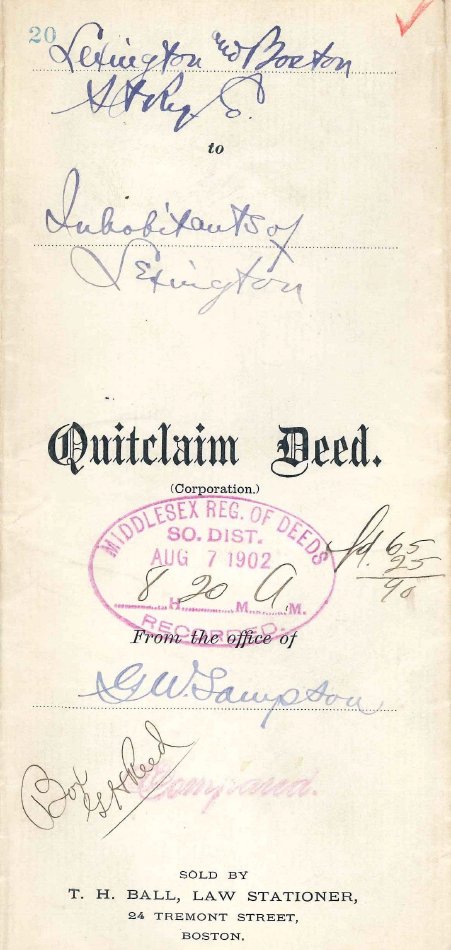 20
Lexington and Boston
St Ry. Co.
to
Inhabitants of
Lexington
Quitclaim Deed.
(Corporation.)
MIDDLESEX REG. OF DEEDS
SO. DIST.
AUG 7 1902
8 H. 20 M. A M.
RECORDED.
65
25
90
From the office of
G. W. Sampson
Box
G H Reed
Compared.
SOLD BY
T. H. BALL, LAW STATIONER,
24 TREMONT STREET,
BOSTON.